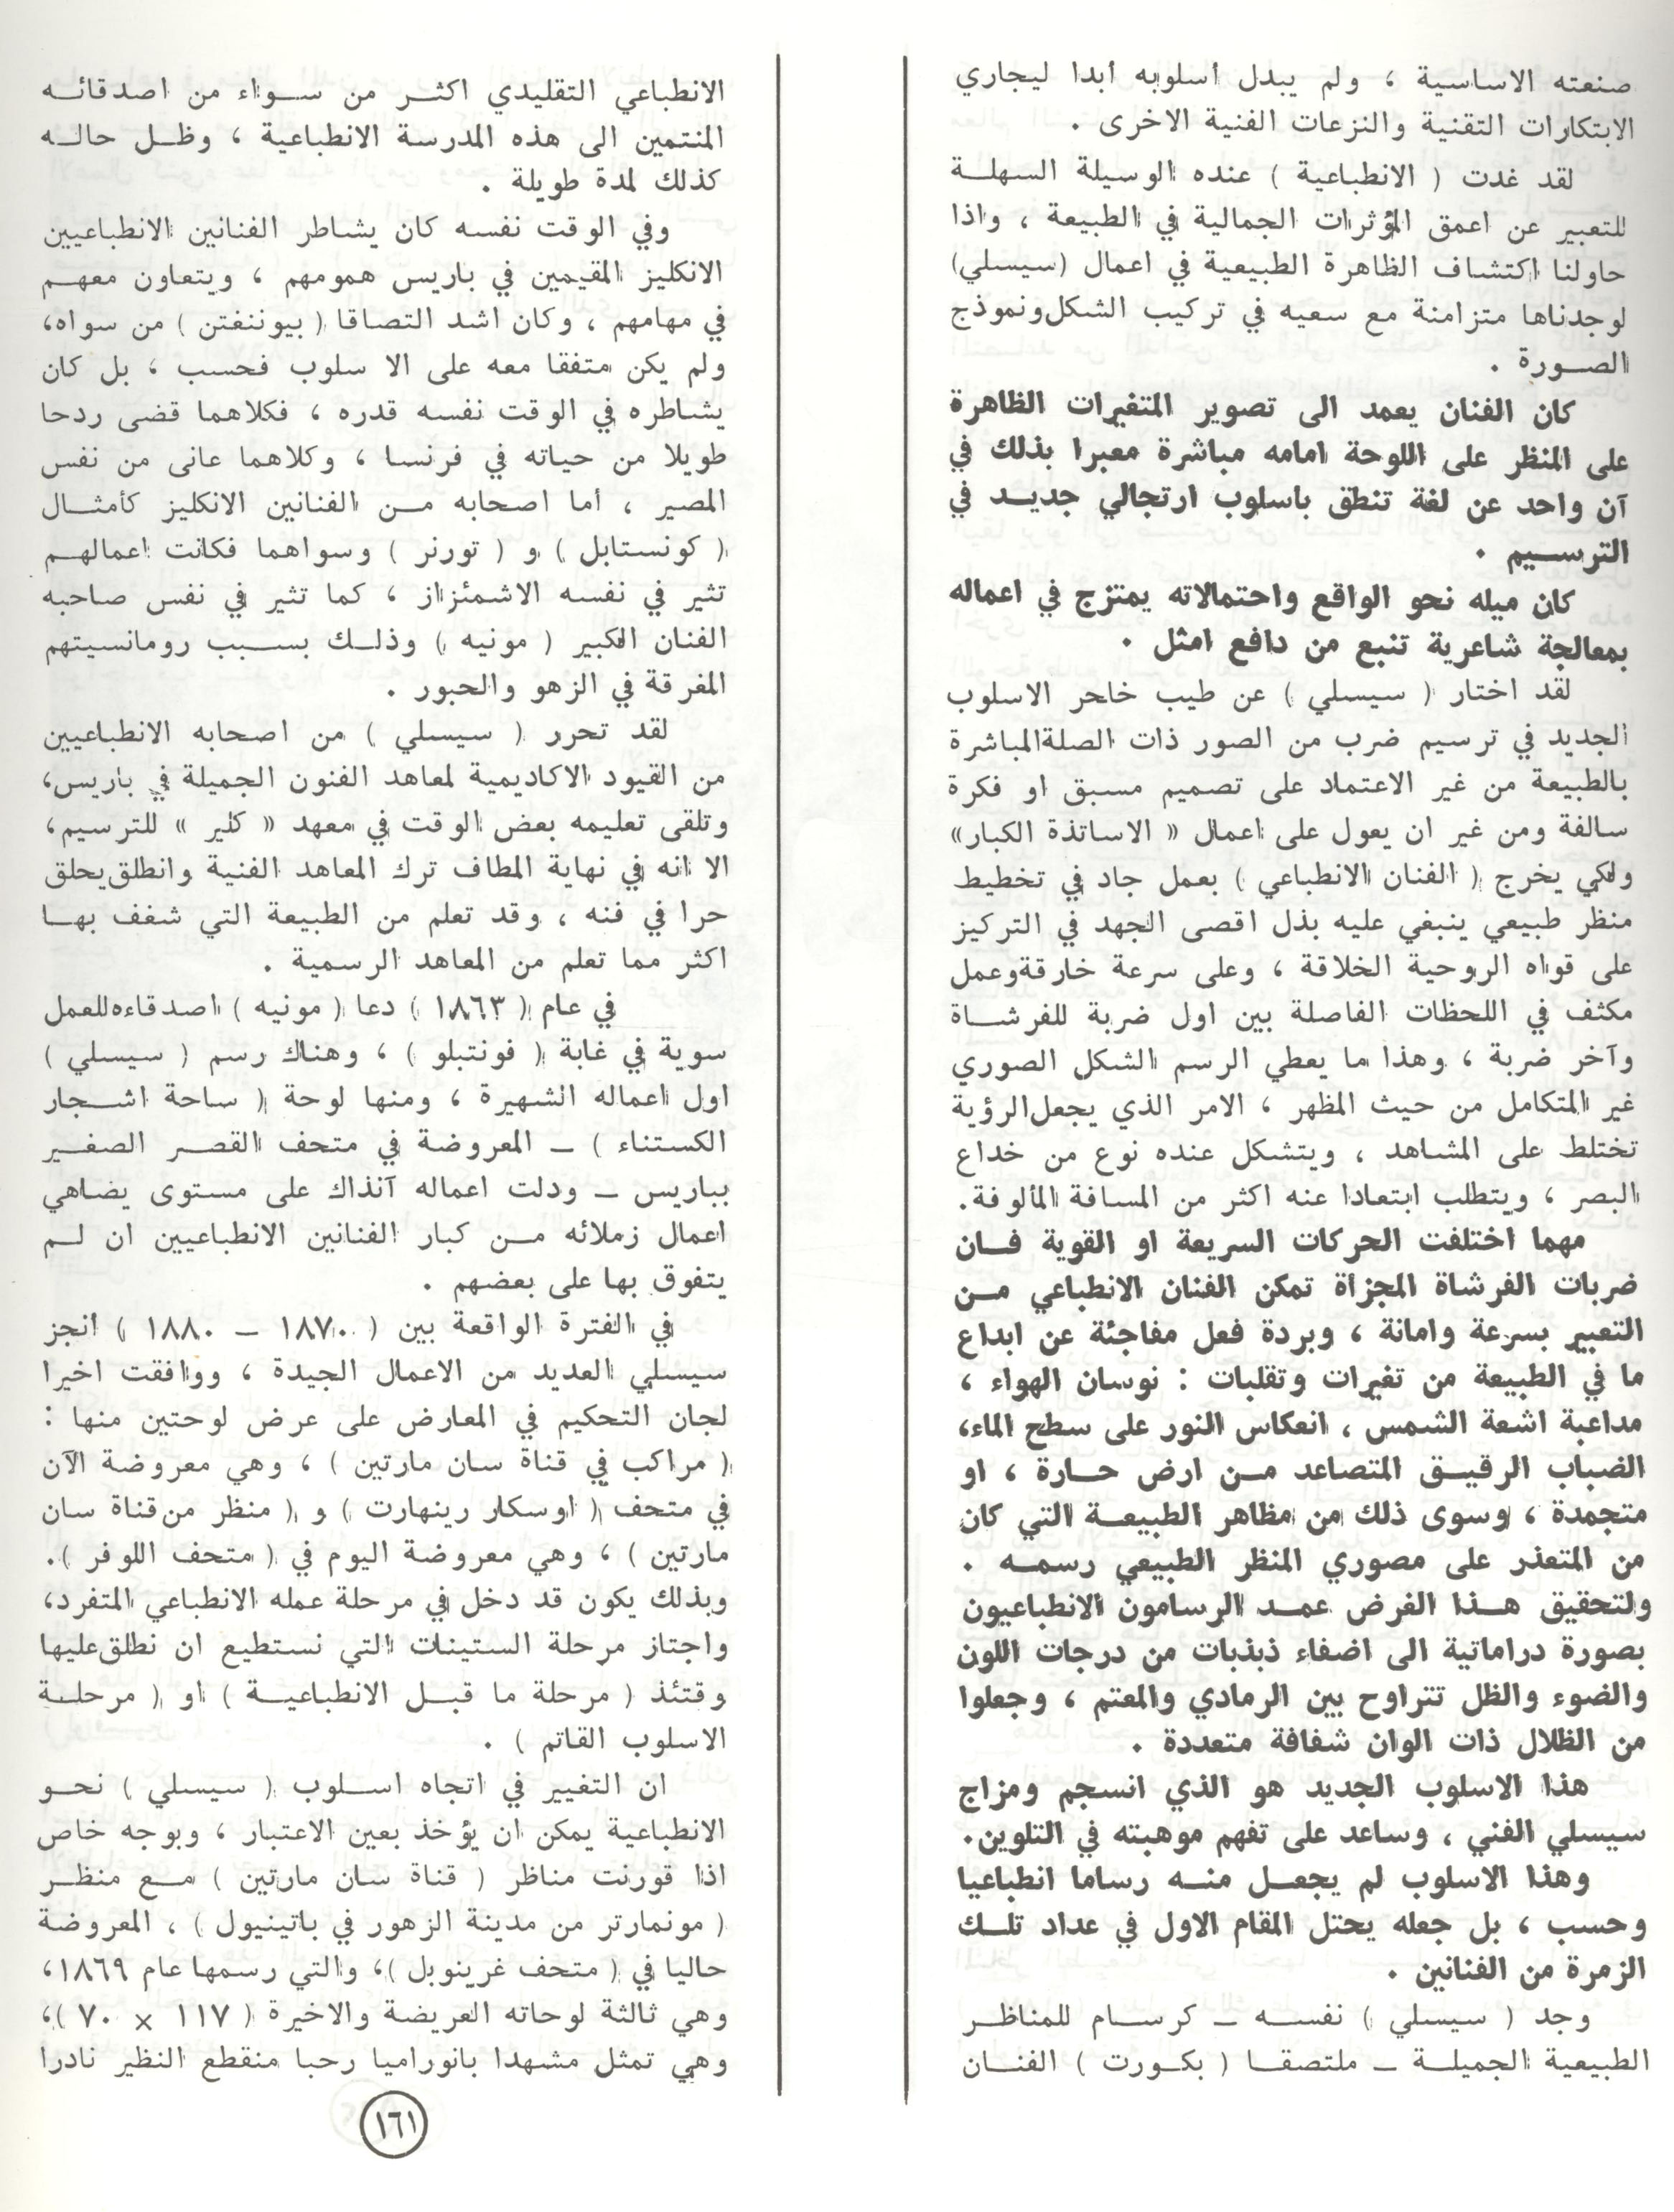 صنعته الاساسية ، ولم يبدل أسلوبه أبدا ليجاري
الابتكارات التقنية والنزعات الفنية الاخرى .
لقد غدت ( الانطباعية ) عنده الوسيلة السهلة
للتعبير عن اعمق المؤثرات الجمالية في الطبيعة ، واذا
حاولنا اكتشاف الظاهرة الطبيعية في اعمال (سيسلي)
لوجدناها متزامنة مع سعيه في تركيب الشكل ونموذج
الصورة .
كان الفنان يعمد الى تصوير المتغيرات الظاهرة
على المنظر على اللوحة امامه مباشرة معبرا بذلك في
آن واحد عن لغة تنطق باسلوب ارتجالي جديد في
الترسيم .
كان ميله نحو الواقع واحتمالاته يمتزج في اعماله
بمعالجة شاعرية تنبع من دافع امثل .
لقد اختار ( سيسلي ) عن طيب خاحر الاسلوب
الجديد في ترسيم ضرب من الصور ذات الصلة المباشرة
بالطبيعة من غير الاعتماد على تصميم مسبق او فكرة
سالفة ومن غير ان يعول على اعمال « الاساتذة الكبار»
ولكي يخرج ( الفنان الانطباعي ) بعمل جاد في تخطيط
منظر طبيعي ينبغي عليه بذل اقصى الجهد في التركيز
على قواه الروحية الخلاقة ، وعلى سرعة خارقة وعمل
مكثف في اللحظات الفاصلة بين اول ضربة للفرشاة
وآخر ضربة ، وهذا ما يعطي الرسم الشكل الصوري
غير المتكامل من حيث المظهر ، الامر الذي يجعل الرؤية
تختلط على المشاهد ، ويتشكل عنده نوع من خداع
البصر ، ويتطلب ابتعادا عنه اكثر من المسافة المألوفة.
مهما اختلفت الحركات السريعة او القوية فان
ضربات الفرشاة المجزاة تمكن الفنان الانطباعي من
التعبير بسرعة وامانة ، وبردة فعل مفاجئة عن ابداع
ما في الطبيعة من تغيرات وتقلبات : نوسان الهواء ،
مداعبة اشعة الشمس ، انعكاس النور على سطح الماء،
الضباب الرقيق المتصاعد من ارض حارة ، او
متجمدة ، وسوى ذلك من مظاهر الطبيعة التي كان
من المتعذر على مصوري المنظر الطبيعي رسمه .
ولتحقيق هذا الغرض عمد الرسامون الانطباعيون
بصورة دراماتية الى اضفاء ذبذبات من درجات اللون
والضوء والظل تتراوح بين الرمادي والمعتم ، وجعلوا
من الظلال ذات الوان شفافة متعددة .
هذا الاسلوب الجديد هو الذي انسجم ومزاج
سيسلي الفني ، وساعد على تفهم موهبته في التلوين.
وهذا الاسلوب لم يجعل منه رساما انطباعيا
وحسب ، بل جعله يحتل المقام الاول في عداد تلك
الزمرة من الفنانين .
وجد ( سيسلي ) نفسه – كرسام للمناظر
الطبيعية الجميلة – ملتصقا ( بكورت ) الفنان
الانطباعي التقليدي اكثر من سواء من اصدقائه
المنتمين الى هذه المدرسة الانطباعية ، وظل حاله
كذلك لمدة طويلة .
وفي الوقت نفسه كان يشاطر الفنانين الانطباعيين
الانكليز المقيمين في باريس همومهم ، ويتعاون معهم
في مهامهم ، وكان اشد التصاقا ( بيوننغتن ) من سواه،
ولم يكن متفقا معه على الا سلوب فحسب ، بل كان
يشاطره في الوقت نفسه قدره ، فكلاهما قضى ردحا
طويلا من حياته في فرنسا ، وكلاهما عانى من نفس
المصير ، أما اصحابه من الفنانين الانكليز كأمثال
( كونستابل ) و ( تورنر ) وسواهما فكانت اعمالهم
تثير في نفسه الاشمئزاز ، كما تثير في نفس صاحبه
الفنان الكبير ( مونيه ) وذلك بسبب رومانسيتهم
المغرقة في الزهو والحبور .
لقد تحرر ( سيسلي ) من اصحابه الانطباعيين
من القيود الاكاديمية لمعاهد الفنون الجميلة في باريس،
وتلقى تعليمه بعض الوقت في معهد « كلير » للترسيم،
الا انه في نهاية المطاف ترك المعاهد الفنية وانطلق يحلق
حرا في فنه ، وقد تعلم من الطبيعة التي شغف بها
اكثر مما تعلم من المعاهد الرسمية .
في عام ( ١٨٦٣ ) دعا ( مونيه ) اصدقاءه للعمل
سوية في غابة ( فونتبلو ) ، وهناك رسم ( سيسلي )
اول اعماله الشهيرة ، ومنها لوحة ( ساحة اشجار
الكستناء ) – المعروضة في متحف القصر الصغير
بباريس – ودلت اعماله آنذاك على مستوى يضاهي
اعمال زملائه من كبار الفنانين الانطباعيين ان لم
يتفوق بها على بعضهم .
في الفترة الواقعة بين ( ١٨٧٠ – ١٨٨٠ ) أنجز
سيسلي العديد من الاعمال الجيدة ، ووافقت اخيرا
لجان التحكيم في المعارض على عرض لوحتين منها :
( مراكب في قناة سان مارتين ) ، وهي معروضة الآن
في متحف ( اوسكار رينهارت ) و ( منظر من قناة سان
مارتين ) ، وهي معروضة اليوم في ( متحف اللوفر ).
وبذلك يكون قد دخل في مرحلة عمله الانطباعي المتفرد،
واجتاز مرحلة الستينات التي نستطيع ان نطلق عليها
وقتئذ ( مرحلة ما قبل الانطباعية ) او ( مرحلة
الاسلوب القاتم ) .
ان التغيير في اتجاه اسلوب ( سيسلي ) نحو
الانطباعية يمكن ان يؤخذ بعين الاعتبار ، وبوجه خاص
اذا قورنت مناظر ( قناة سان مارتين ) مع منظر
( مونمارتر من مدينة الزهور في باتينيول ) ، المعروضة
حاليا في ( متحف غرينوبل )، والتي رسمها عام ١٨٦٩،
وهي ثالثة لوحاته العريضة والاخيرة ( ١١٧ × ٧٠ )،
وهي تمثل مشهدا بانوراميا رحبا منقطع النظير نادرا
١٦١